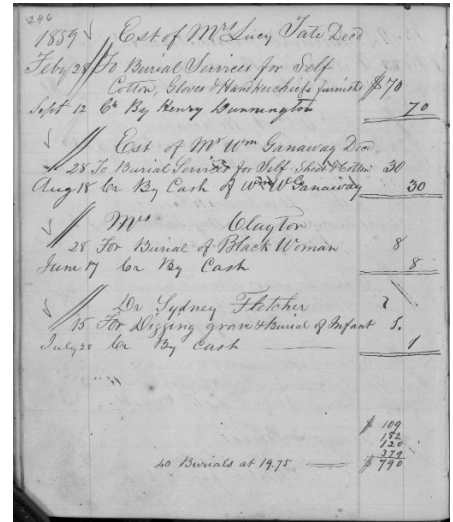 246
1859 Est of Mrs Lucy Tate Decd
Feby 28 To Burial Services for Self
Cotton, Gloves & Handkerchiefs furnishd $70
Sept 12 Cr By Henry Dunnington 70
Est of Mr Wm Ganaway Dec
28 To Burial Services for Self Shroud & Cotton 30
Aug 18 Cr By Cash of Wm W Ganaway 30
Mrs Clayton
28 For Burial of Black Woman 8
June 17 Cr By Cash 8
Dr Sydney Fletcher
15 For Digging grave & Burial of Infant
July 25 Cr By Cash 1
$ 109
182
120
379
40 Burials at 19.75 $ 790